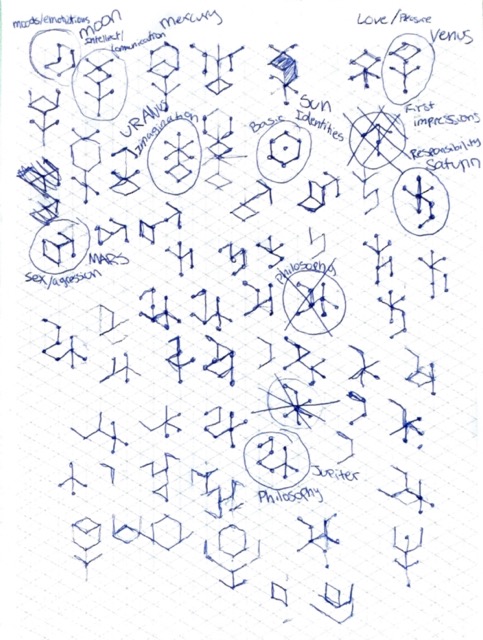 moods/emotitions
moon
Intellect/
communication
Mercury
Love/Pleasure
Venus
URANUS
Imagination
Basic
Sun
Identities
First
impressions
Responsibility
Saturn
Sex/agression
MARS
Philosophy
Philosophy
Jupiter